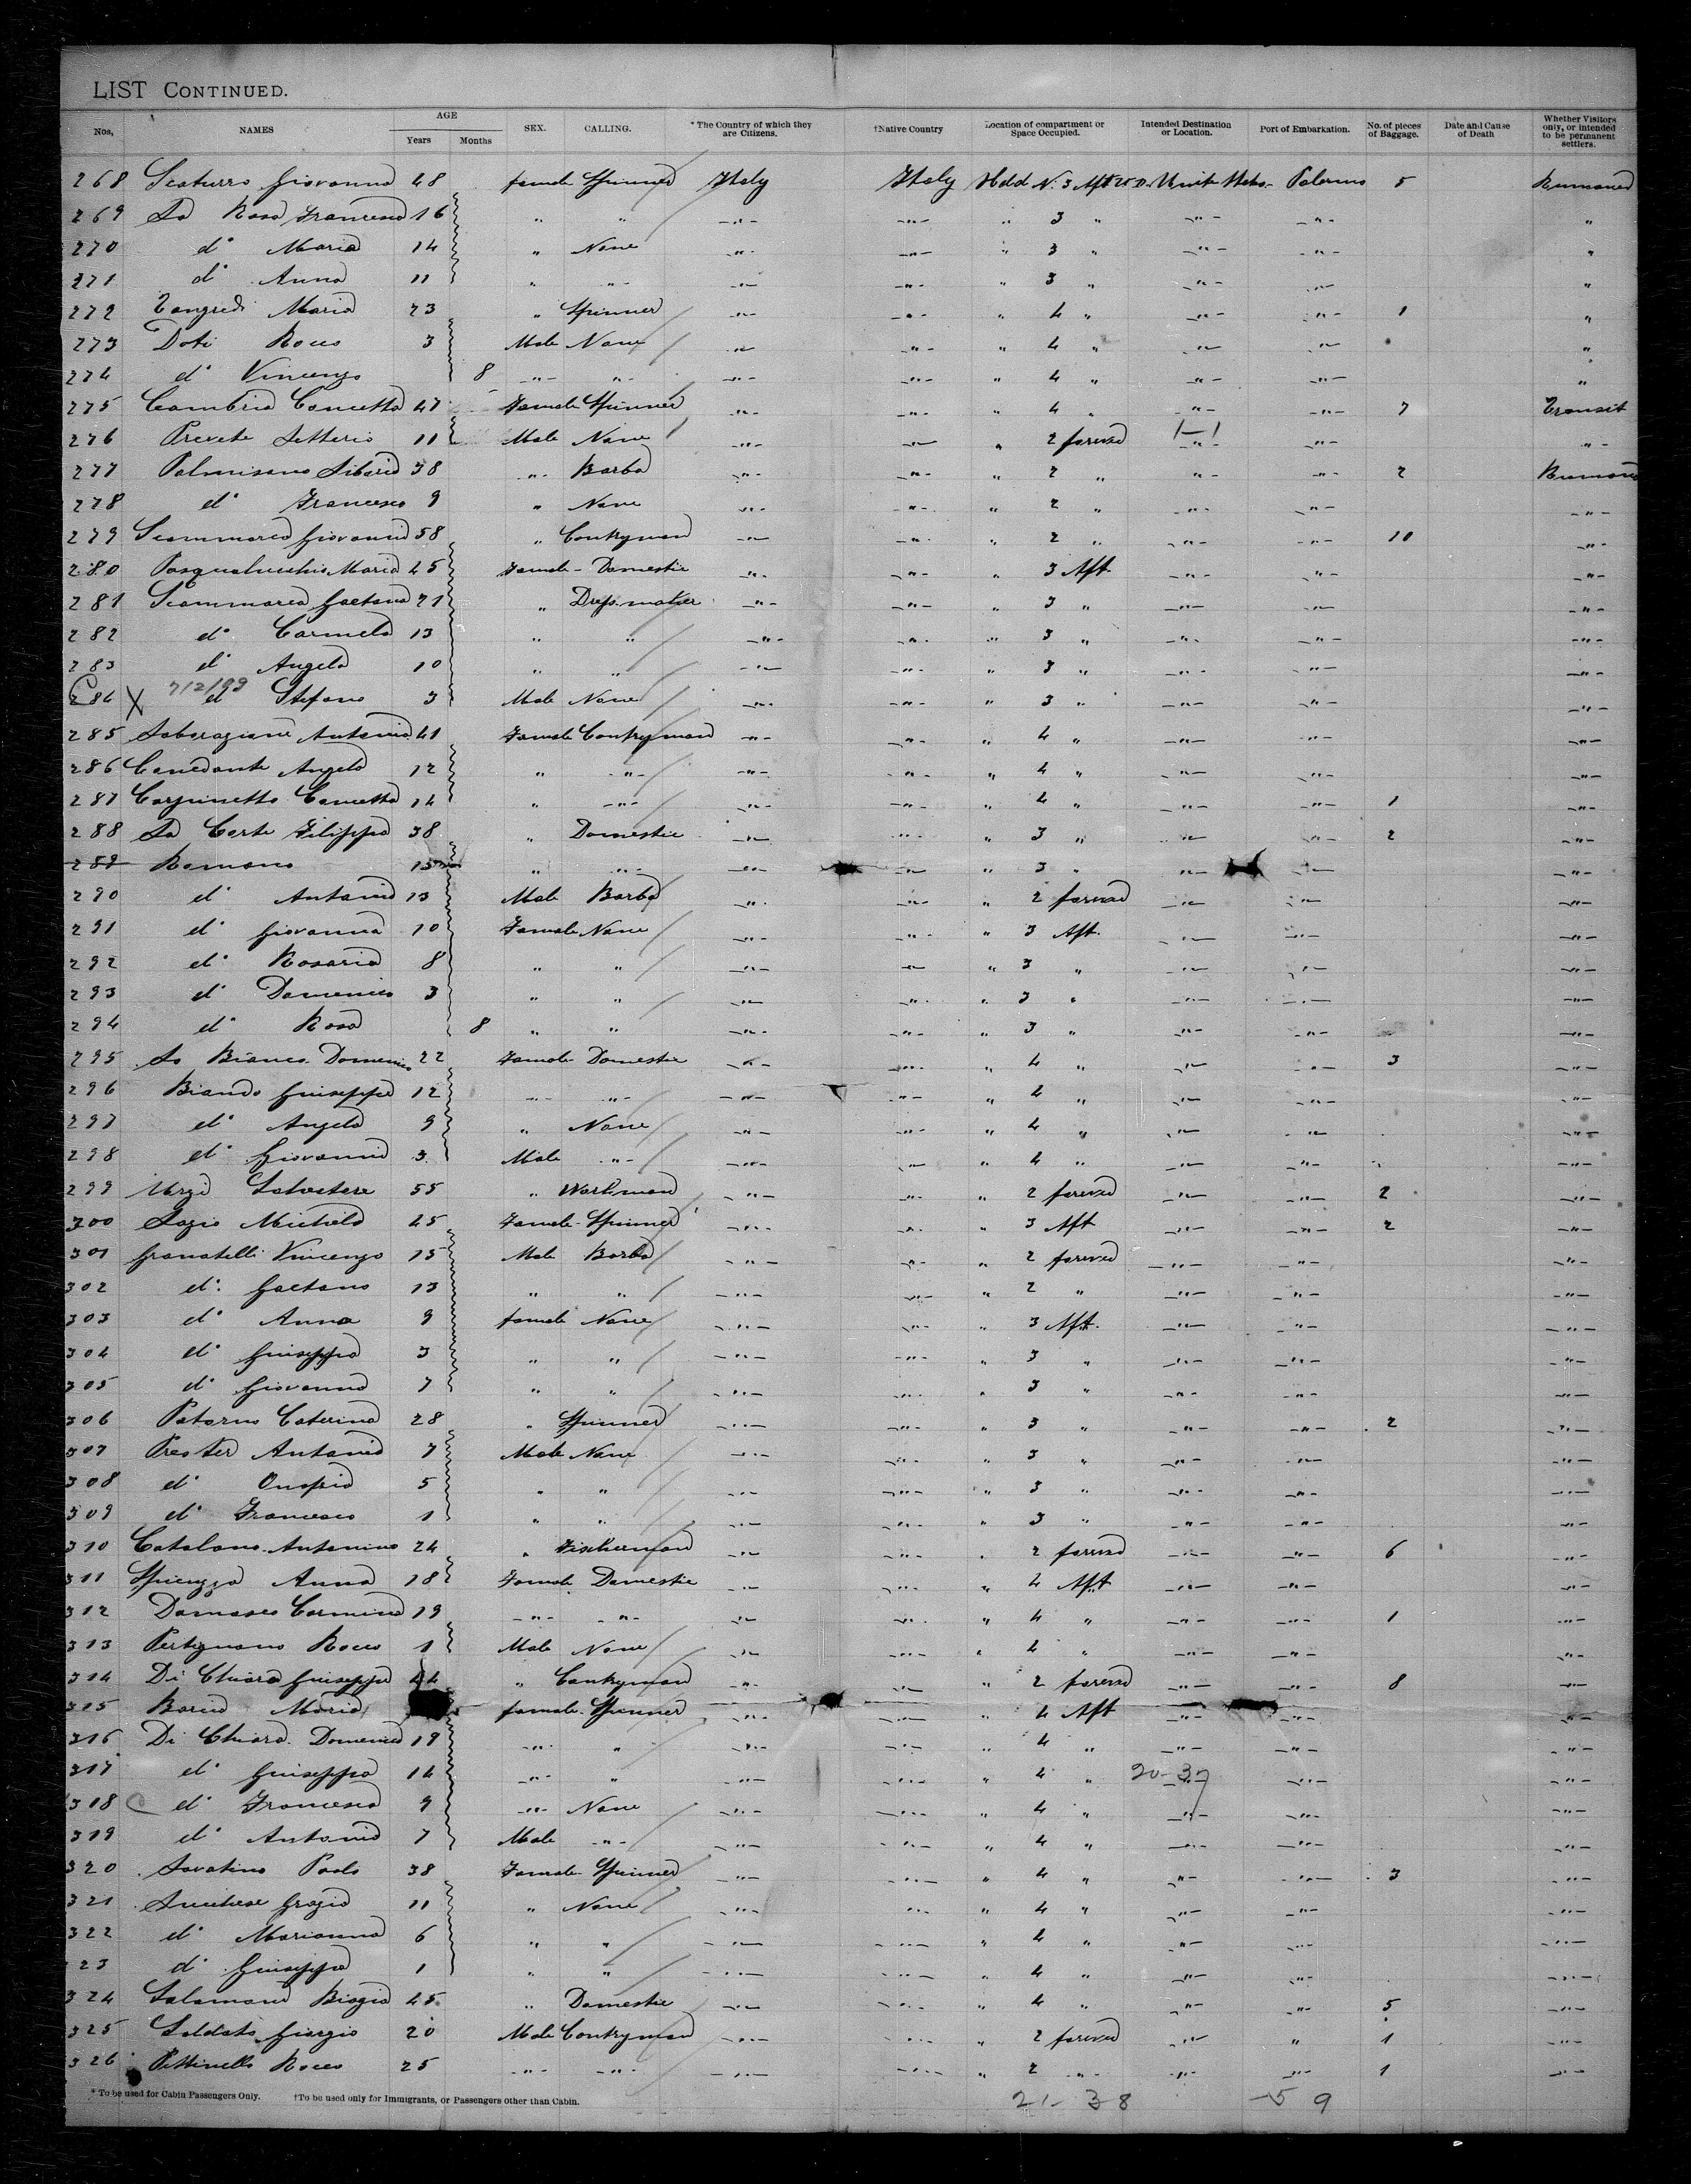 LIST CONTINUED.
Nos, NAMES AGE Years Months SEX. CALLING. * The Country of which they are Citizens. †Native Country Location of compartment or Space Occupied. Intended Destination or Location. Port of Embarkation. No. of pieces of Baggage. Date and Cause of Death Whether Visitors only, or intended to be permanent settlers.
268 Scaturro Giovanna 48 female Spinner Italy Italy Held N. 3 Aft Unite States Palermo 5
269 La Rosa Francesca 16 " " " " " 3 " " " "
270 d° Maria 14 " None " " " 3 " " " "
271 d° Anna 11 " " " " " 3 " " " "
272 Tangredi Maria 23 " Spinner " " " 4 " " " 1 "
273 Doti Rocco 3 Male None " " " 4 " " " "
274 d° Vincenzo 8 " " " " " 4 " " " "
275 Cambria Concetta 47 Female Spinner " " " 4 " " " 7 Transit
276 Prevete Letterio 11 Male None " " " 2 forward " " "
277 Palmisano Liborio 38 " Barba " " " 2 " " " 2
278 d° Francesco 9 " None " " " 2 " " " "
279 Scammarca Giovanni 58 " Contryman " " " 2 " " " 10 "
280 Maria 25 Female Domestic " " " 3 Aft " " "
281 Scammarca Gaetana 21 " Dressmaker " " " 3 " " " "
282 d° Carmela 13 " " " " " 3 " " " "
283 d° Angela 10 " " " " " 3 " " " "
284 X 712/99 d° Stefano 3 Male None " " " 3 " " " "
285 Antonia 41 Female Contryman " " " 4 " " " "
286 Angela 12 " " " " " 4 " " " "
287 Concetta 14 " " " " " 4 " " " 1 "
288 La Corte Filippa 38 " Domestic " " " 3 " " " 2 "
289 Romano 15 " " " " " 3 " " " "
290 d° Antonio 13 Male Barba " " " 2 forward " " "
291 d° Giovanna 10 Female None " " " 3 Aft. " " "
292 d° Rosaria 8 " " " " " 3 " " " "
293 d° Domenico 3 " " " " " 3 " " " "
294 d° Rosa 8 " " " " " 3 " " " "
295 Lo Bianco Domenico 22 Female Domestic " " " 4 " " " 3 "
296 Biando Giuseppa 12 " " " " " 4 " " " "
297 d° Angela 9 " None " " " 4 " " " "
298 d° Giovanni 3 Male " " " " 4 " " " "
299 Salvatore 55 " Workman " " " 2 forward " " 2 "
300 Lazio Michela 45 Female Spinner " " " 3 Aft " " 2 "
301 Granatelli Vincenzo 15 Male Barba " " " 2 forward " " "
302 d° Gaetano 13 " " " " " 2 " " " "
303 d° Anna 9 female None " " " 3 Aft. " " "
304 d° Giuseppa 3 " " " " " 3 " " " "
305 d° Giovanna 7 " " " " " 3 " " " "
306 Paterno Caterina 28 " Spinner " " " 3 " " " 2 "
307 Antonio 7 Male None " " " 3 " " " "
308 d° Onofrio 5 " " " " " 3 " " " "
309 d° Francesco 1 " " " " " 3 " " " "
310 Catalano Antonino 24 " Fischerman " " " 2 forward " " 6 "
311 Anna 18 Female Domestic " " " 4 Aft " " "
312 Damasco Carmina 19 " " " " " 4 " " " 1 "
313 Rocco 1 Male None " " " 4 " " " "
314 Di Chiara Giuseppe 44 " Contryman " " " 2 forward " " 8 "
315 Maria female Spinner " " " 4 Aft " " "
316 Di Chiara Domenica 19 " " " " " 4 " " " "
317 d° Giuseppa 14 " " " " " 4 " 20-37 " " "
318 d° Francesca 9 " None " " " 4 " " " "
319 d° Antonio 7 Male " " " " 4 " " " "
320 Savatino Paola 38 Female Spinner " " " 4 " " " 3 "
321 Lucchese Grazia 11 " None " " " 4 " " " "
322 d° Marianna 6 " " " " " 4 " " " "
23 d° Giuseppa 1 " " " " " 4 " " " "
324 Salamone Biagia 45 " Domestic " " " 4 " " " 5 "
325 Soldato Giorgio 20 Male Contryman " " " 2 forward " " 1 "
326 Pettinello Rocco 25 " " " " " 2 " " " 1 "
* To be used for Cabin Passengers Only. †To be used only for Immigrants, or Passengers other than Cabin.
21- 38 -59